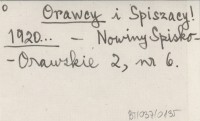 Orawcy i Spiszacy!
1920... - Nowiny Spisko-
-Orawskie 2, nr 6.